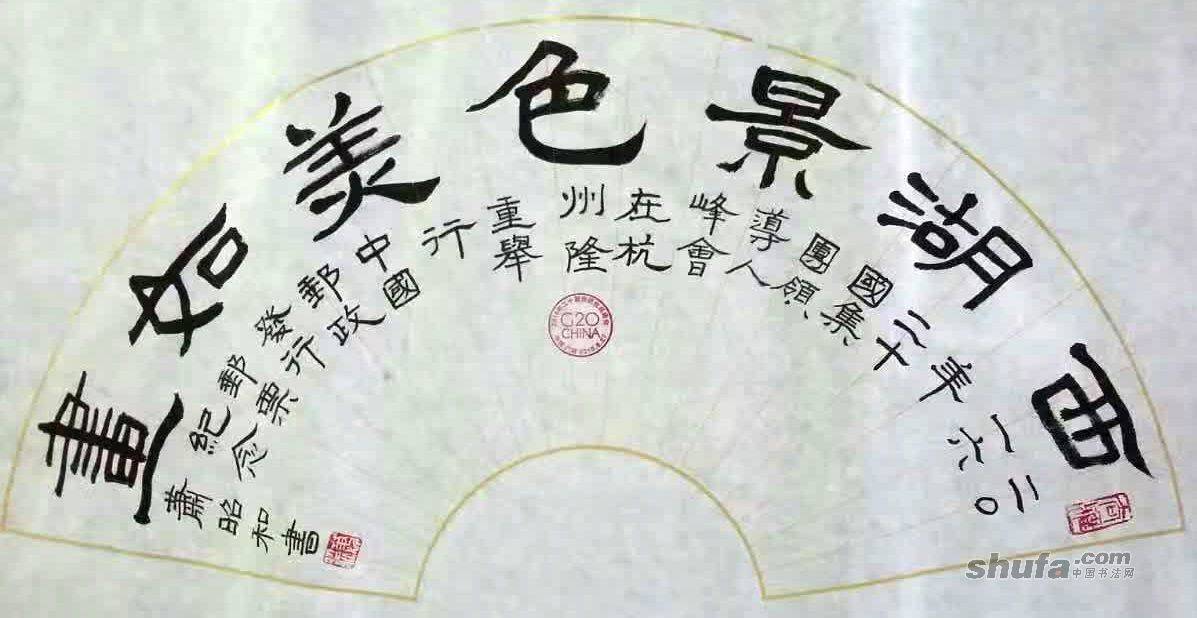 西湖景色美如畫
二〇
一六
年
二十
國集
團領
導人
峰會
在杭
州隆
重舉
行
中國
郵政
發行
郵票
紀念
蕭昭和書
G20
CHINA
shufa.com
中国书法网